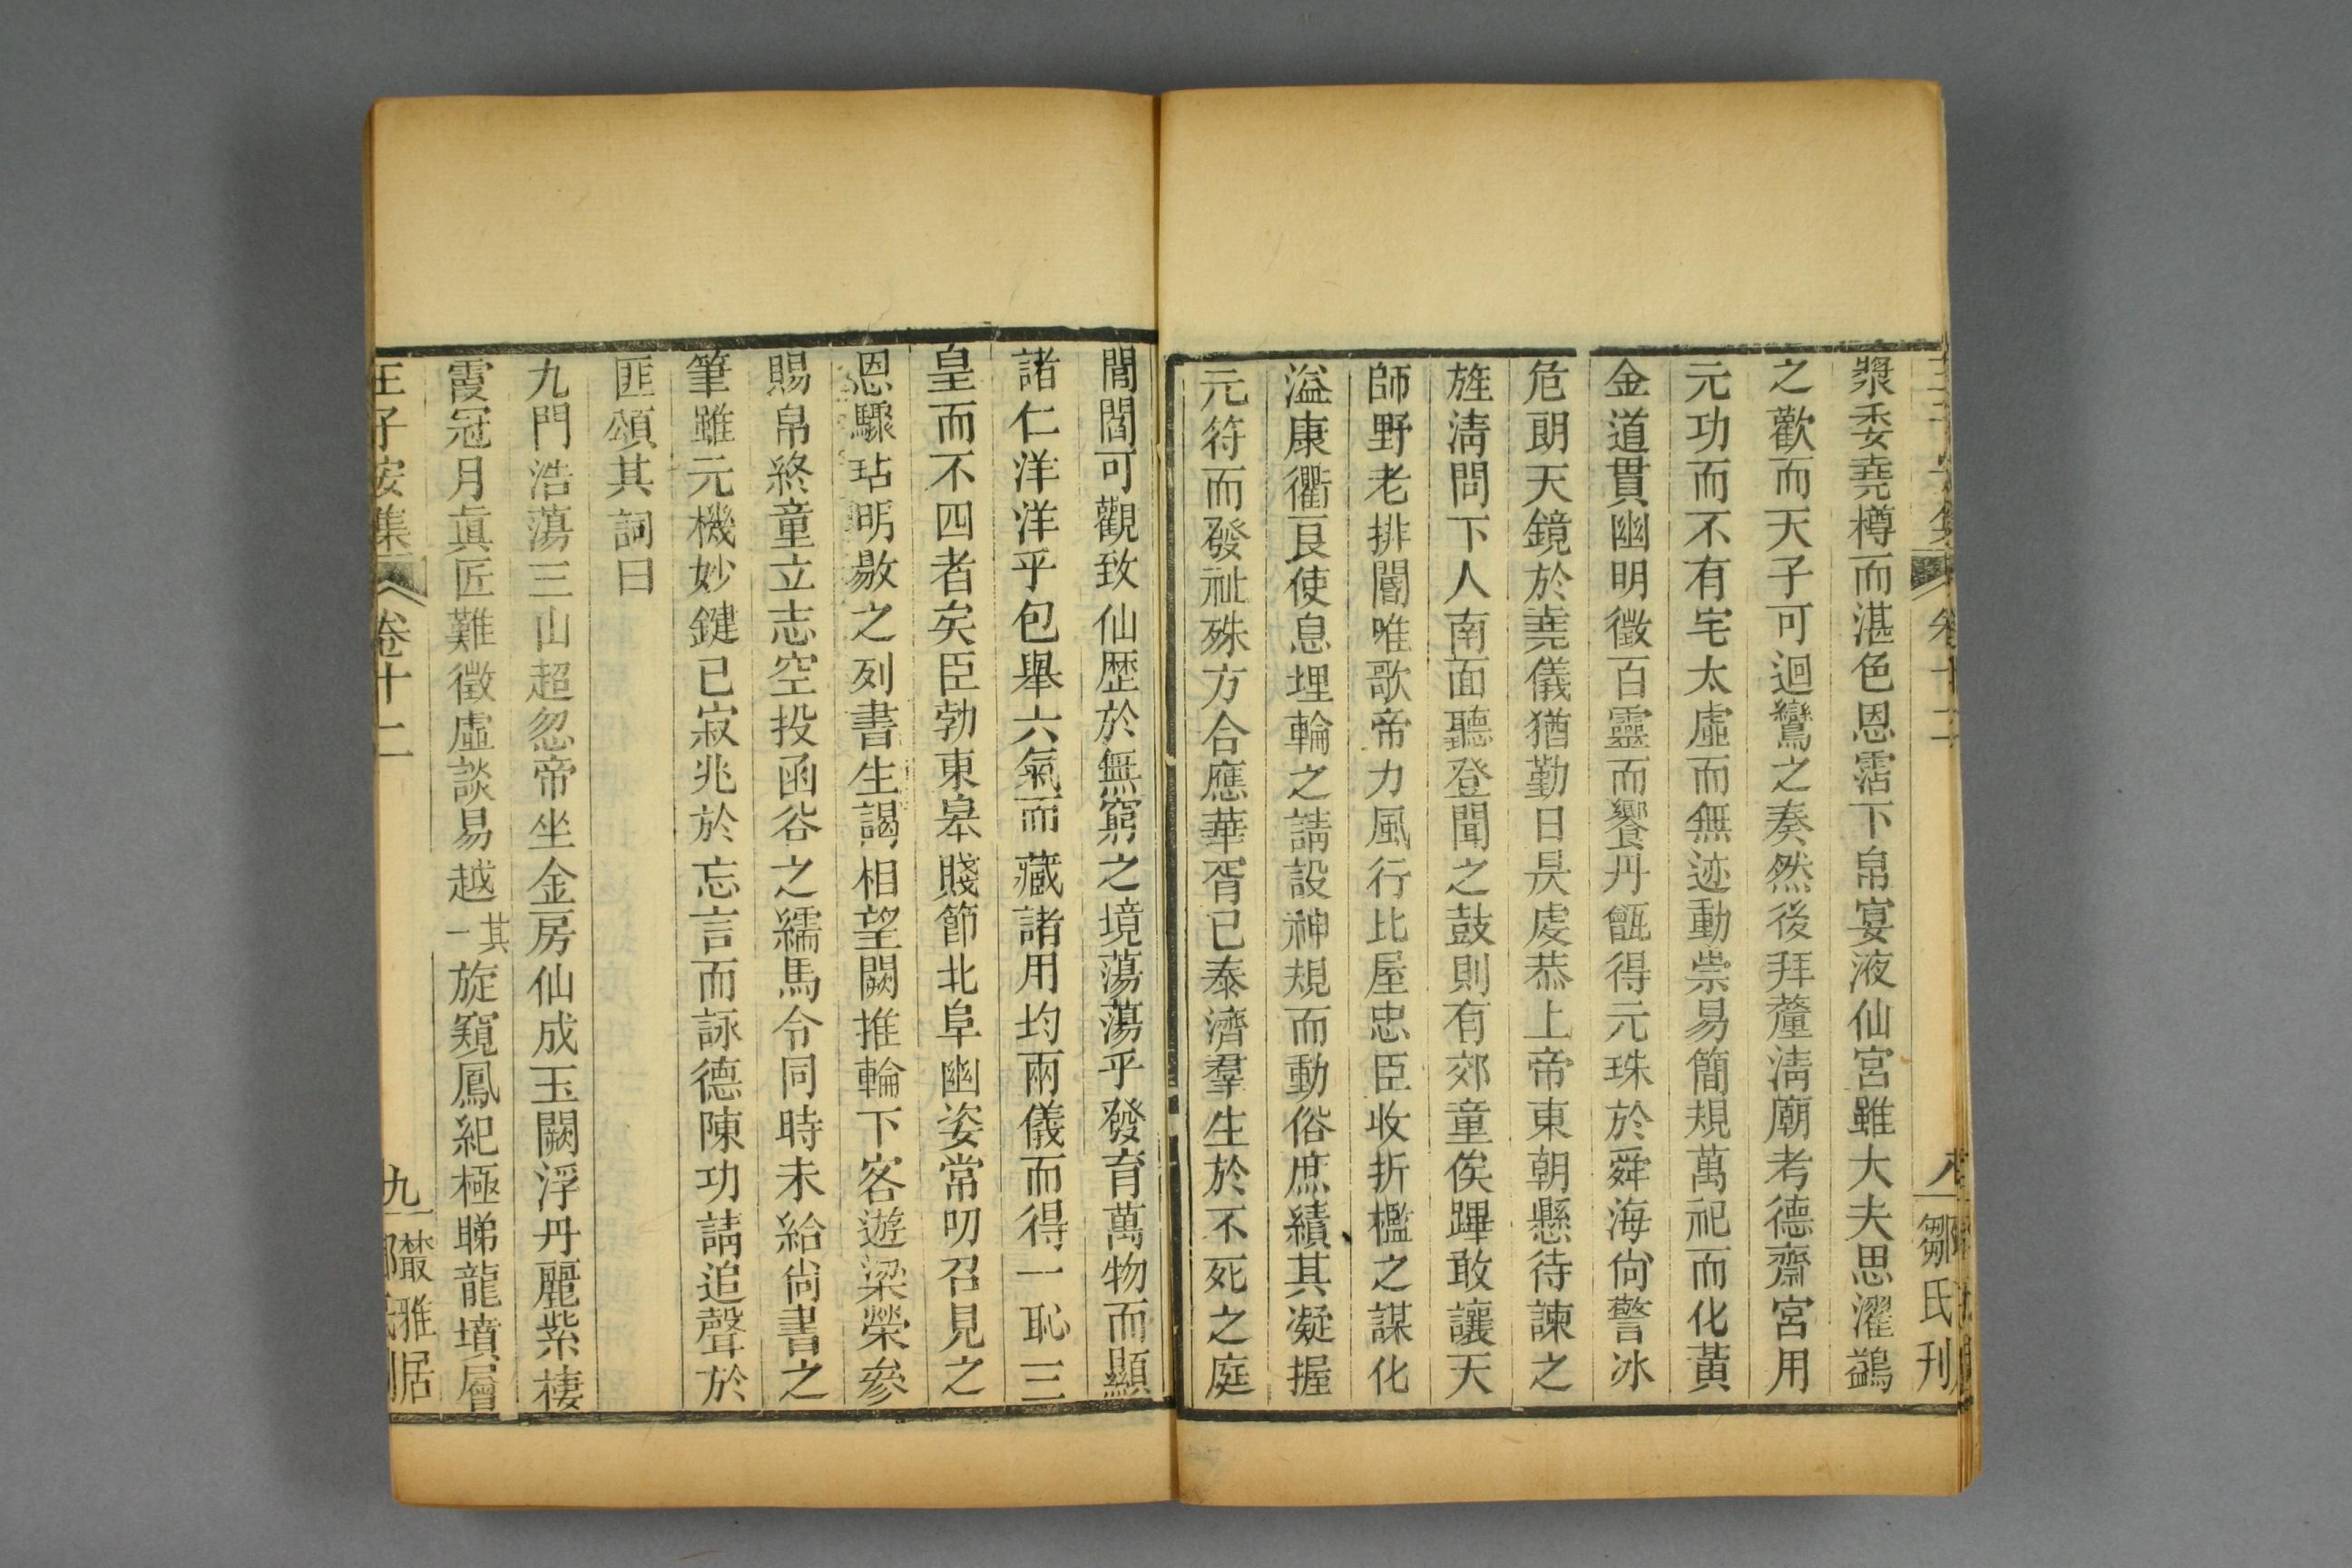 漿委堯樽而湛色恩霑下帛宴液仙宮雖大夫思濯鷁
之歡而天子可迴鸞之奏然後拜釐淸廟考德齋宮用
元功而不有宅太虛而無迹動崇易簡規萬祀而化黃
金道貫幽明徵百靈而饗丹甑得元珠於舜海尙警冰
危朗天鏡於堯儀猶勤日昃虔恭上帝東朝懸待諫之
旌淸問下人南面聽登聞之鼓則有郊童俟蹕敢讓天
師野老排閽唯歌帝力風行比屋忠臣收折檻之謀化
溢康衢良使息埋輪之請設神規而動俗庶績其凝握
元符而發祉殊方合應華胥已泰濟羣生於不死之庭
閶闔可觀致仙歷於無窮之境蕩蕩乎發育萬物而顯
諸仁洋洋乎包舉六氣而藏諸用均兩儀而得一恥三
皇而不四者矣臣勃東皋賤節北阜幽姿常叨召見之
恩驟玷明敭之列書生謁相望闕推輪下客遊梁榮參
賜帛終童立志空投函谷之繻馬令同時未給尙書之
筆雖元機妙鍵已寂兆於忘言而詠德陳功請追聲於
匪頌其詞曰
九門浩蕩三山超忽帝坐金房仙成玉闕浮丹麗紫棲
霞冠月眞匠難徵虛談易越其一旋窺鳳紀極睇龍墳層
王子安集 卷十二 九 叢雅居
鄒氏刊